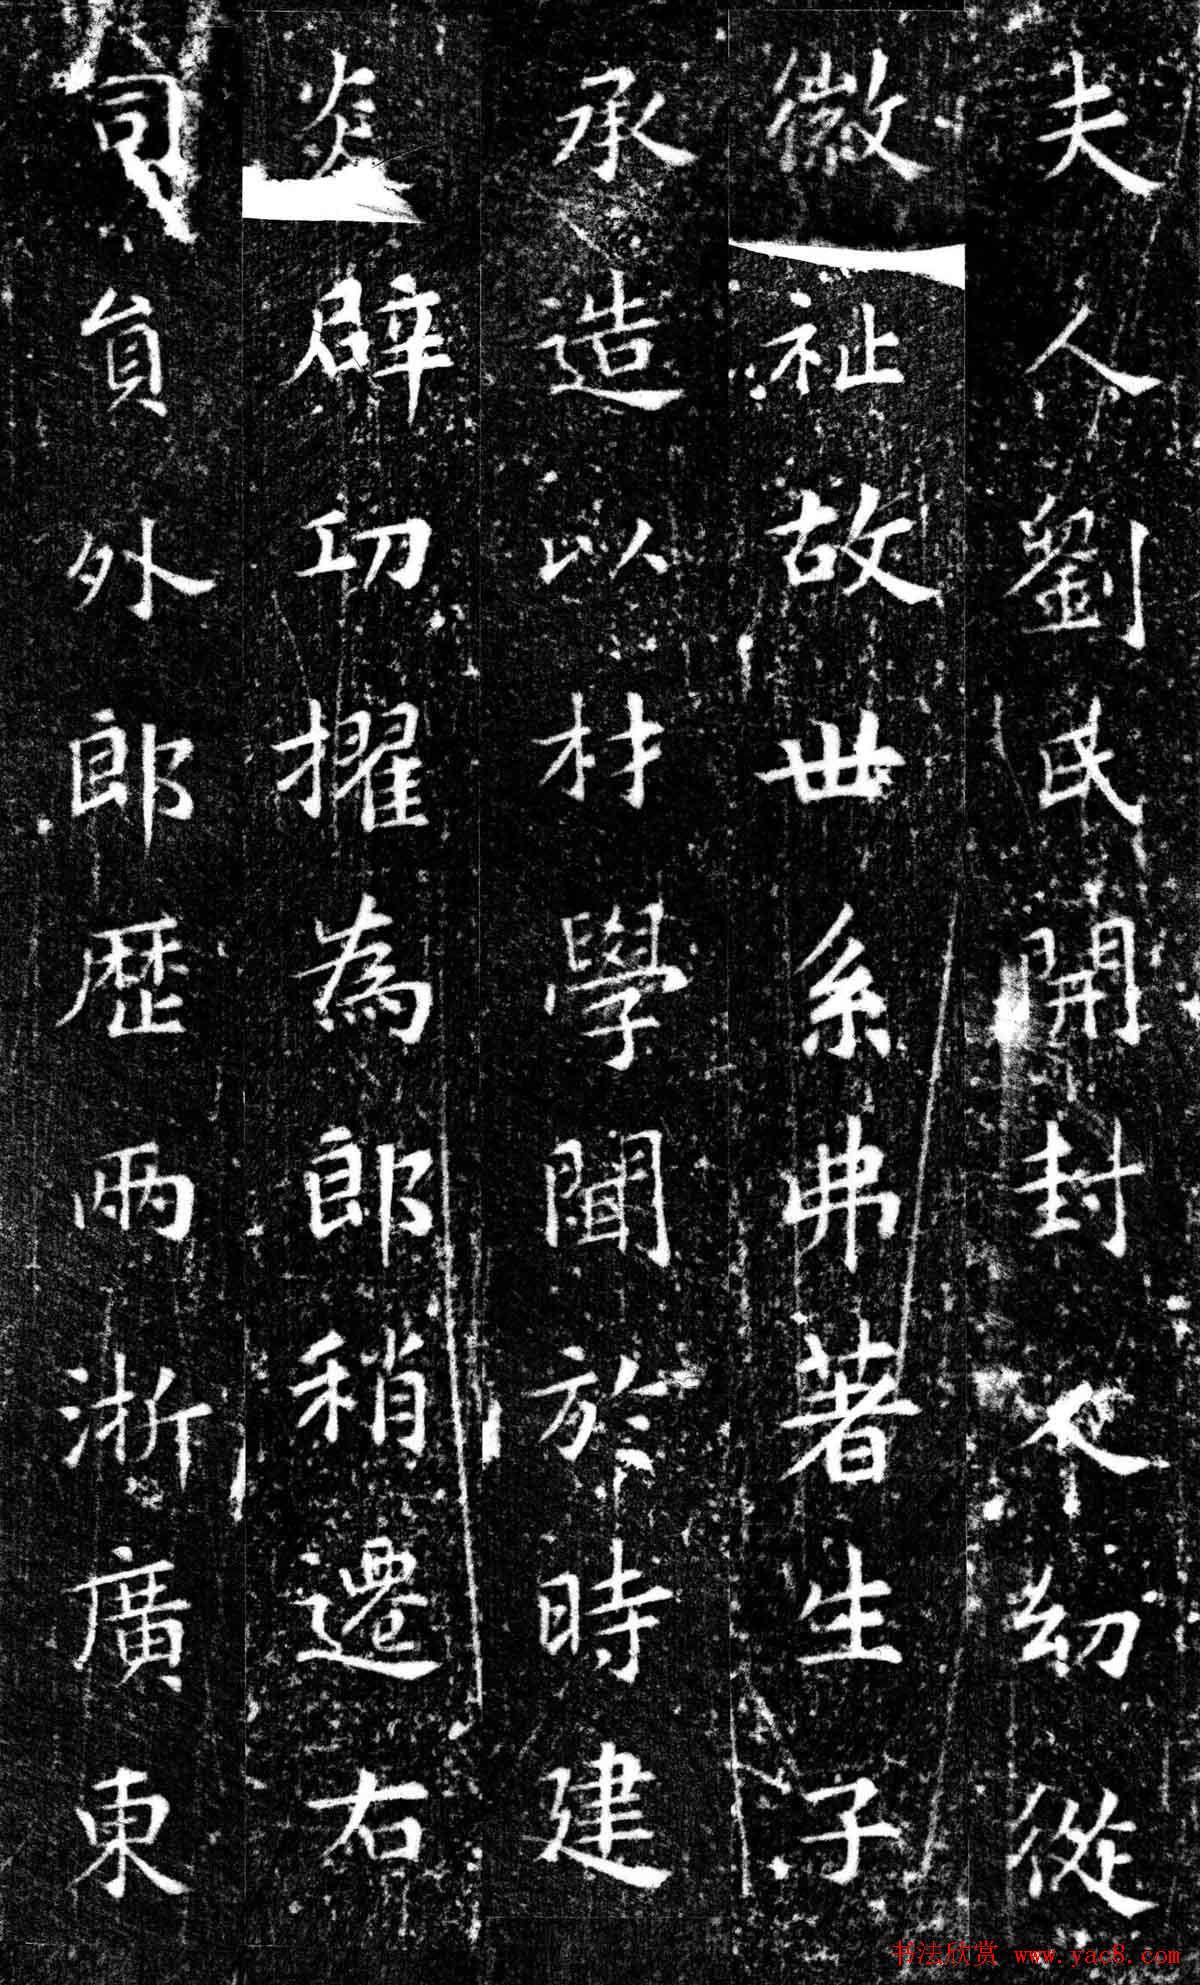 夫人劉氏開封人幼從
微祉故世系弗著生子
承造以材學聞於時建
炎辟功擢為郎稍遷右
司員外郎歷兩浙廣東
书法欣赏 www.yac8.com